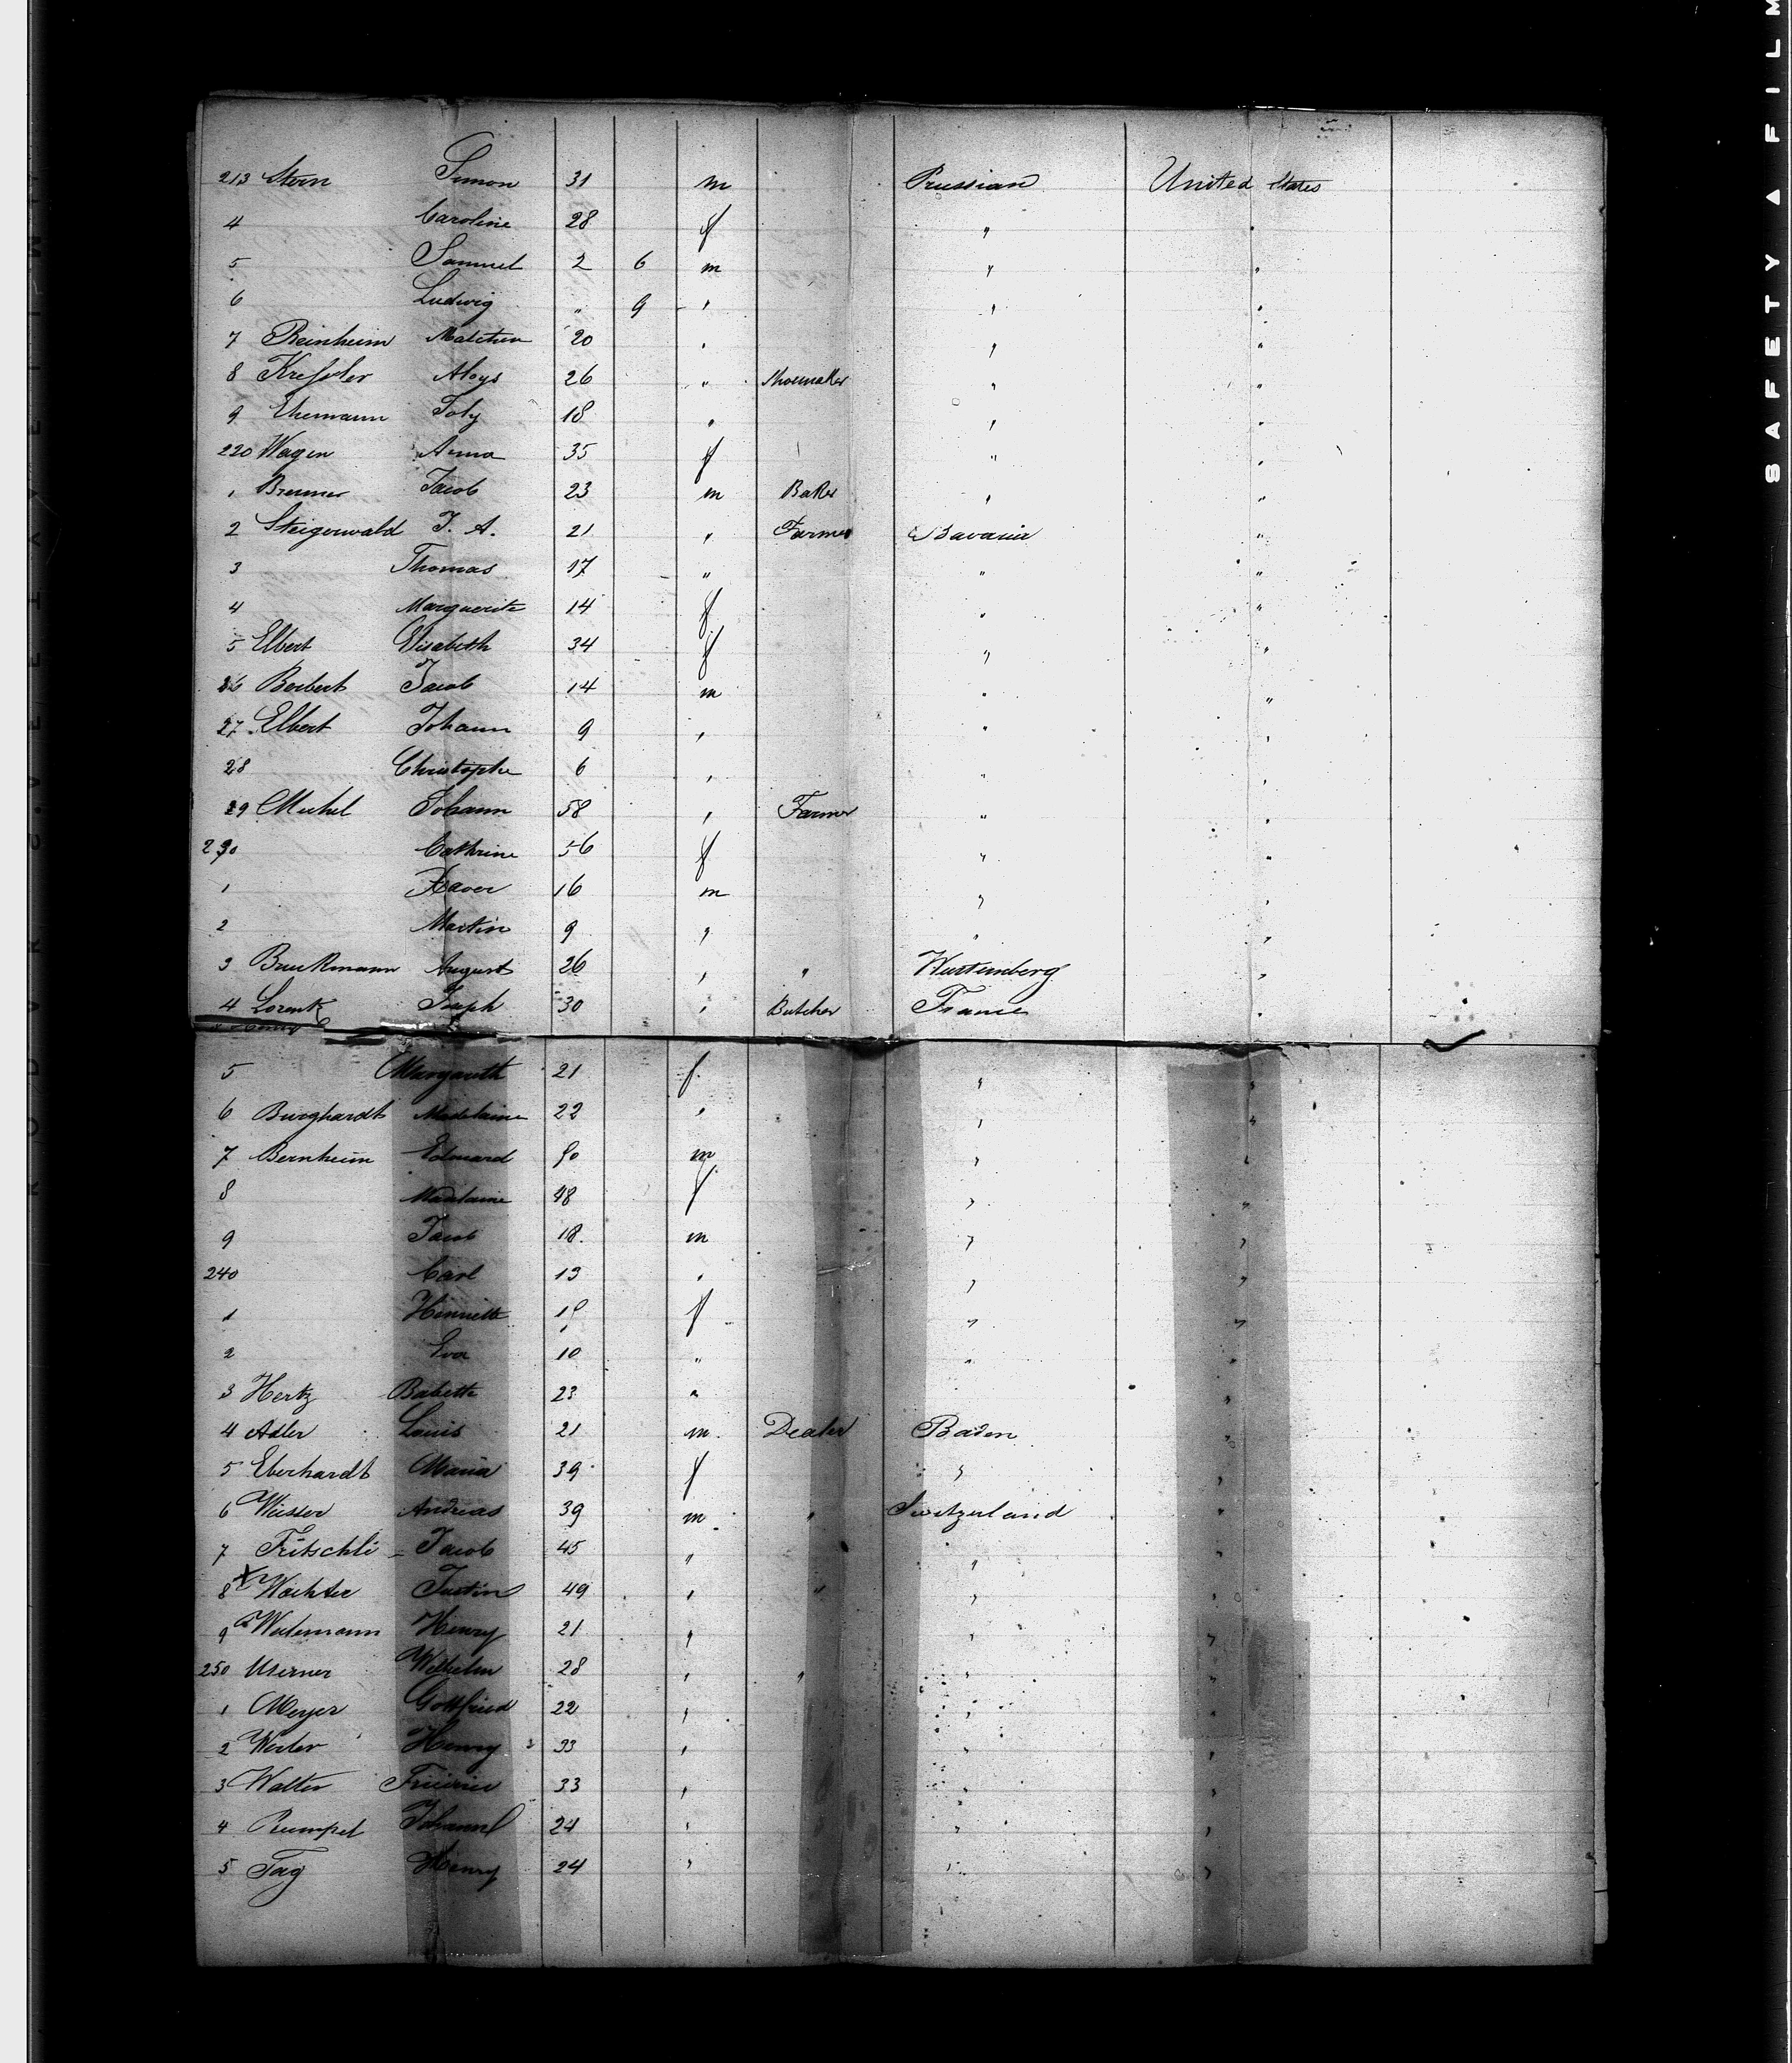 213 Stern Simon 31 m Prussian United States
4 Caroline 28 f " "
5 Samuel 2 6 m " "
6 Ludwig " 9 " " "
7 Reinheim Malchen 20 " " "
8 Kressler Aloys 26 " Shoemaker " "
9 Ehemann Joly 18 " " "
220 Wagen Anna 35 f " "
1 Brenner Jacob 23 m Baker " "
2 Steigerwald J. A. 21 " Farmer Bavaria "
3 Thomas 17 " " "
4 Marguerite 14 f " "
5 Elbert Elisabeth 34 f " "
26 Berbert Jacob 14 m " "
27 Elbert Johann 9 " " "
28 Christophe 6 " " "
29 Michel Johann 58 " Farmer " "
230 Cathrine 56 f " "
1 Xaver 16 m " "
2 Martin 9 " " "
3 Bruckmann August 26 " " Wurtemberg "
4 Lorentz Joseph 30 " Butcher France "
5 Margareth 21 f " "
6 Burghardt Madelaine 22 " " "
7 Bernheim Edouard 50 m " "
8 Madelaine 48 f " "
9 Jacob 18 m " "
240 Carl 13 " " "
1 Henriette 15 f " "
2 Eva 10 " " "
3 Hertz Babette 23 " " "
4 Adler Louis 21 m Dealer Baden "
5 Eberhardt Maria 39 f " "
6 Weisser Andreas 39 m " Switzerland "
7 Fritschli Jacob 45 " " "
8 x Wachter Justin 49 " " " "
9 Watemann Henry 21 " " "
250 Userner Wilhelm 28 " " " "
1 Meyer Gottfried 22 " " "
2 Weiler Henry 33 " " "
3 Walter 33 " " "
4 Rumpel Johann 24 " " "
5 Tag Henry 24 " " "
SAFETY ▲ FILM